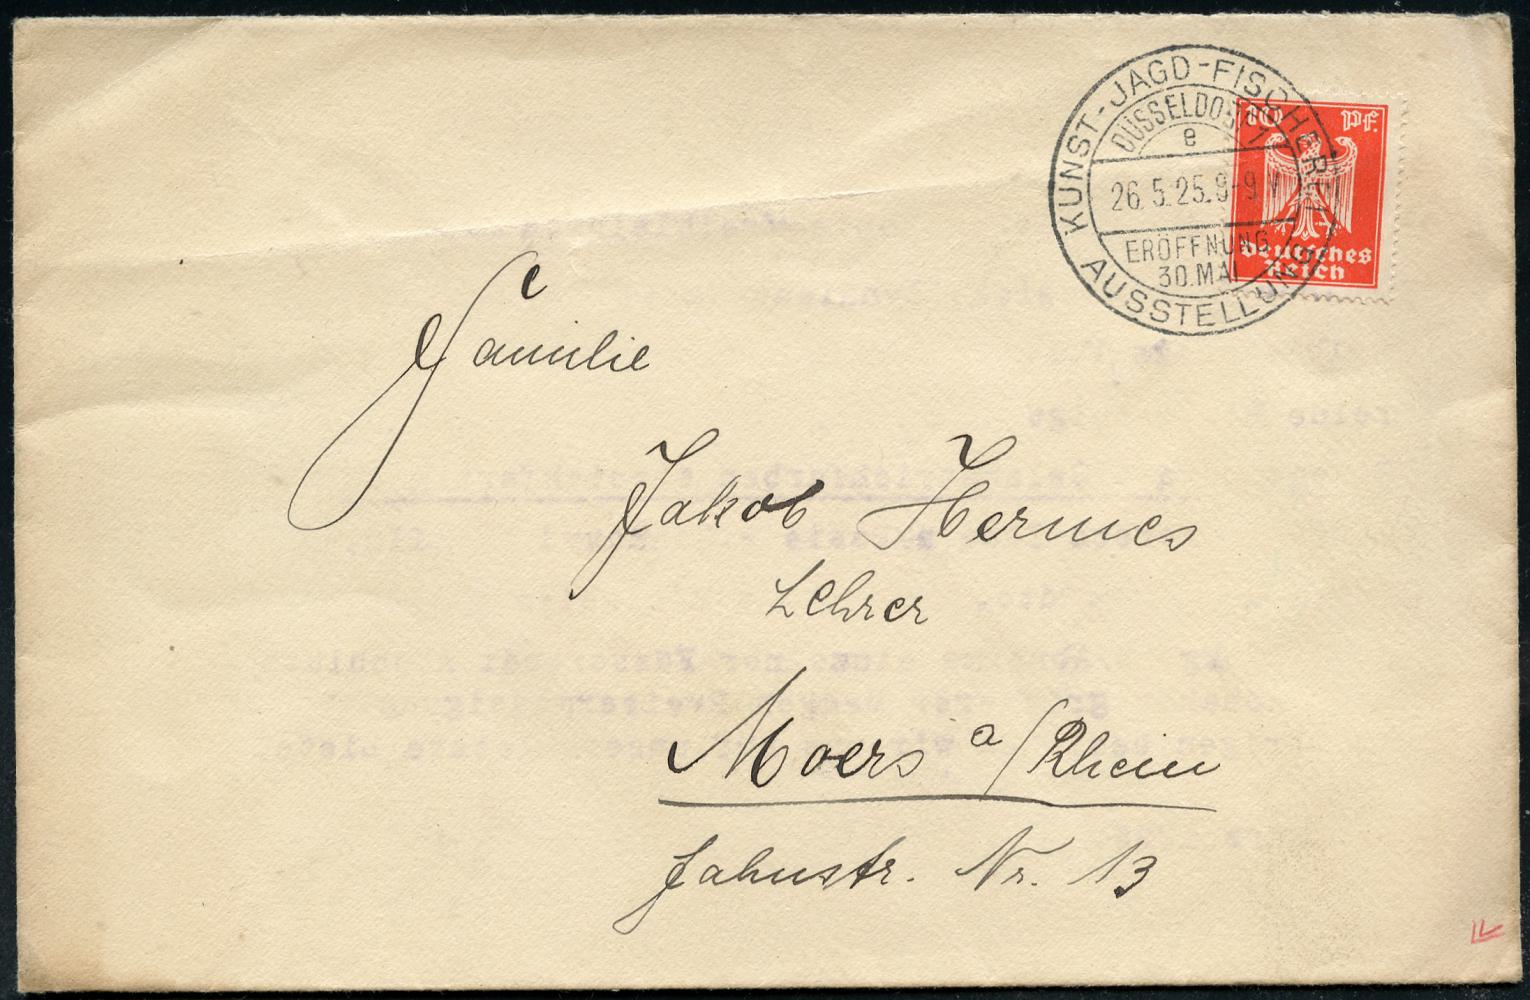 KUNST-JAGD-FISCHEREI
AUSSTELLUNG
DÜSSELDORF 1
e
26.5.25.8-9 V
ERÖFFNUNG
30.MAI
10 Pf.
Deutsches
Reich
Familie
Jakob Hermes
Lehrer
Moers a/Rhein
Jahnstr. Nr. 13